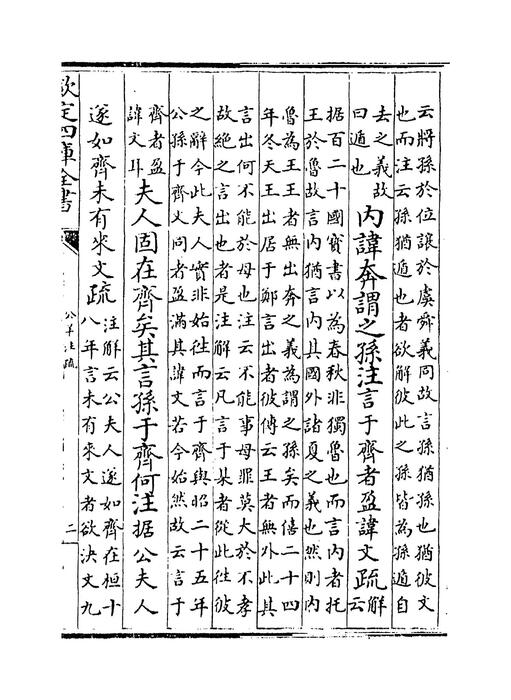 云將孫於位讓於虞舜義同故言孫猶孫也猶彼文
也而注云孫猶遁也者欲解彼此之孫皆為孫遁自
去之義故
曰遁也
內諱奔謂之孫注言于齊者盈諱文疏
解
云
据百二十國寶書以為春秋非獨魯也而言內者托
王於魯故言內猶言內其國外諸夏之義也然則內
魯為王王者無出奔之義為謂之孫矣而僖二十四
年冬天王出居于鄭言出者彼傳云王者無外此其
言出何不能於母也注云不能事母罪莫大於不孝
故絶之言出也者是注解云凡言于某者從此徃彼
之辭今此夫人實非始徃而言于齊與昭二十五年
公孫于齊文同者盈滿其諱文若今始然故云言于
齊者盈
諱文耳
夫人固在齊矣其言孫于齊何注据公夫人
遂如齊未有來文疏
注解云公夫人遂如齊在桓十
八年言未有來文者欲決文九
欽定四庫全書
公羊注疏
二